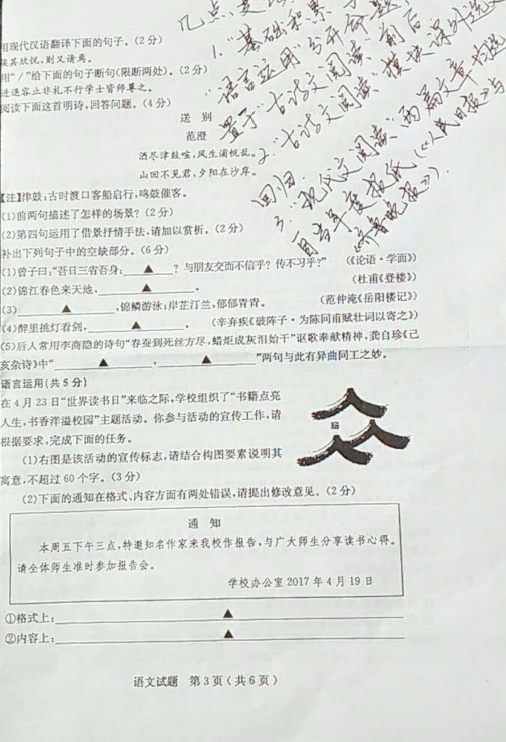 几点变
1."基础积累
"语言运用"
置于"古诗文阅读"前后
2."古诗文阅读"
回归
3."现代文阅读"两篇文章均选
自当年度报纸《人民日报》与
《齐鲁晚报》.
用现代汉语翻译下面的句子。(2分)
笑欣悦,则又请焉。
用"/"给下面的句子断句(限断两处)。(2分)
进退容止非礼不行学士皆师尊之。
阅读下面这首明诗,回答问题。(4分)
送 别
范澄
酒尽津鼓喧,风生浦帆乱。
山回不见君,夕阳在沙岸。
【注】津鼓:古时渡口客船启行,鸣鼓催客。
(1)前两句描述了怎样的场景?(2分)
(2)第四句运用了借景抒情手法,请加以赏析。(2分)
补出下列句子中的空缺部分。(6分)
(1)曾子曰:"吾日三省吾身:▲?与朋友交而不信乎?传不习乎?" (《论语·学而》)
(2)锦江春色来天地,▲。 (杜甫《登楼》)
(3)▲,锦鳞游泳;岸芷汀兰,郁郁青青。 (范仲淹《岳阳楼记》)
(4)醉里挑灯看剑,▲。 (辛弃疾《破阵子·为陈同甫赋壮词以寄之》)
(5)后人常用李商隐的诗句"春蚕到死丝方尽,蜡炬成灰泪始干"讴歌奉献精神,龚自珍《己
亥杂诗》中"▲,▲"两句与此有异曲同工之妙。
语言运用(共5分)
在4月23日"世界读书日"来临之际,学校组织了"书籍点亮
人生,书香洋溢校园"主题活动。你参与活动的宣传工作,请
根据要求,完成下面的任务。
(1)右图是该活动的宣传标志,请结合构图要素说明其
寓意,不超过60个字。(3分)
(2)下面的通知在格式、内容方面有两处错误,请提出修改意见。(2分)
通 知
本周五下午三点,特邀知名作家来我校作报告,与广大师生分享读书心得。
请全体师生准时参加报告会。
学校办公室2017年4月19日
①格式上:▲
②内容上:▲
语文试题 第3页(共6页)